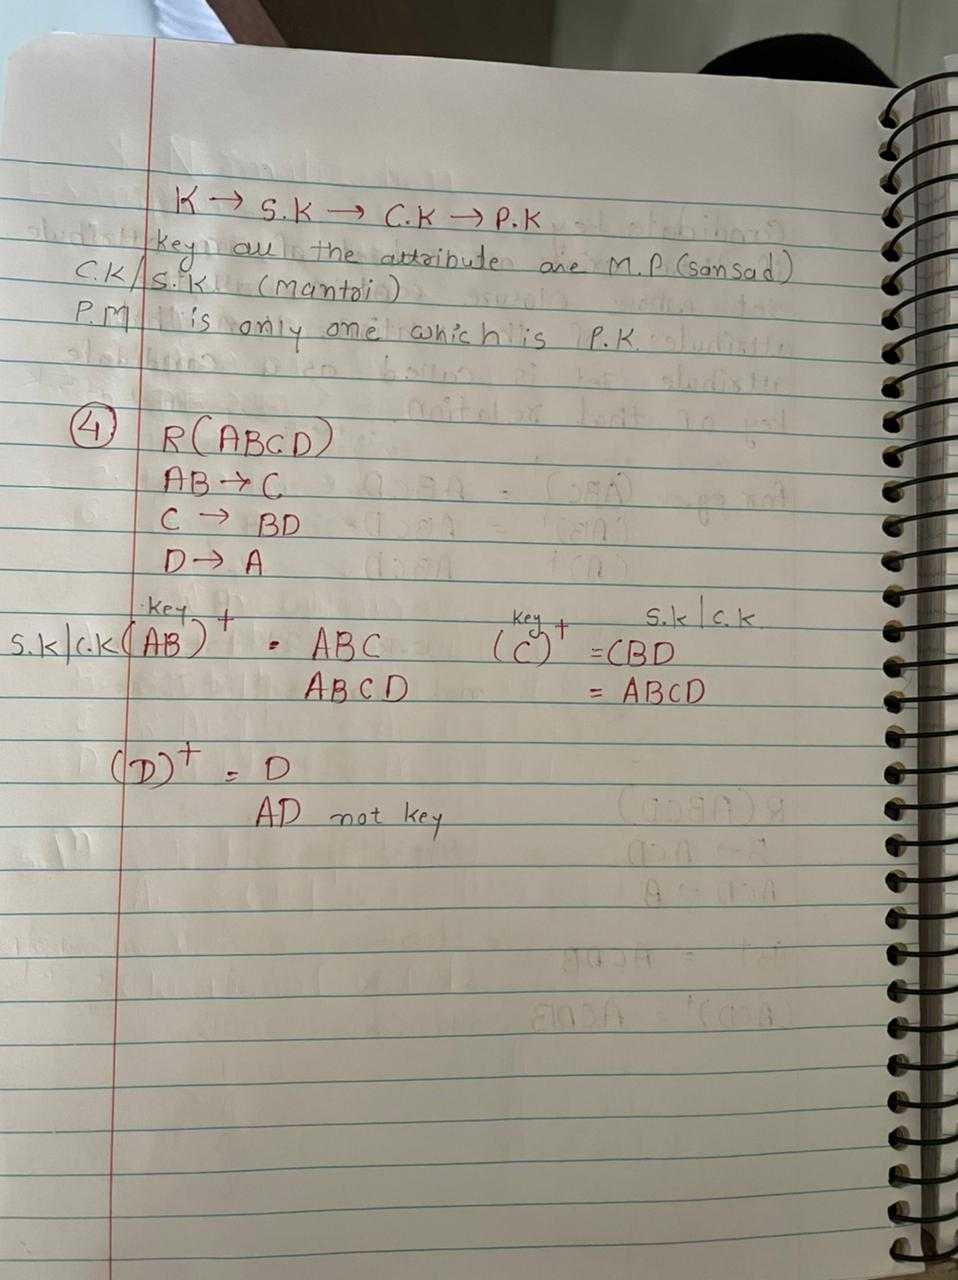 K → S.K → C.K → P.K
key all the attribute are M.P (sansad)
C.K/S.K (mantri)
P.M is only one which is P.K.
4 R(ABCD)
AB → C
C → BD
D → A
S.K|C.K (AB)+ key = ABC
ABCD
(C)+ key = CBD S.K|C.K.
= ABCD
(D)+ = D
AD not key